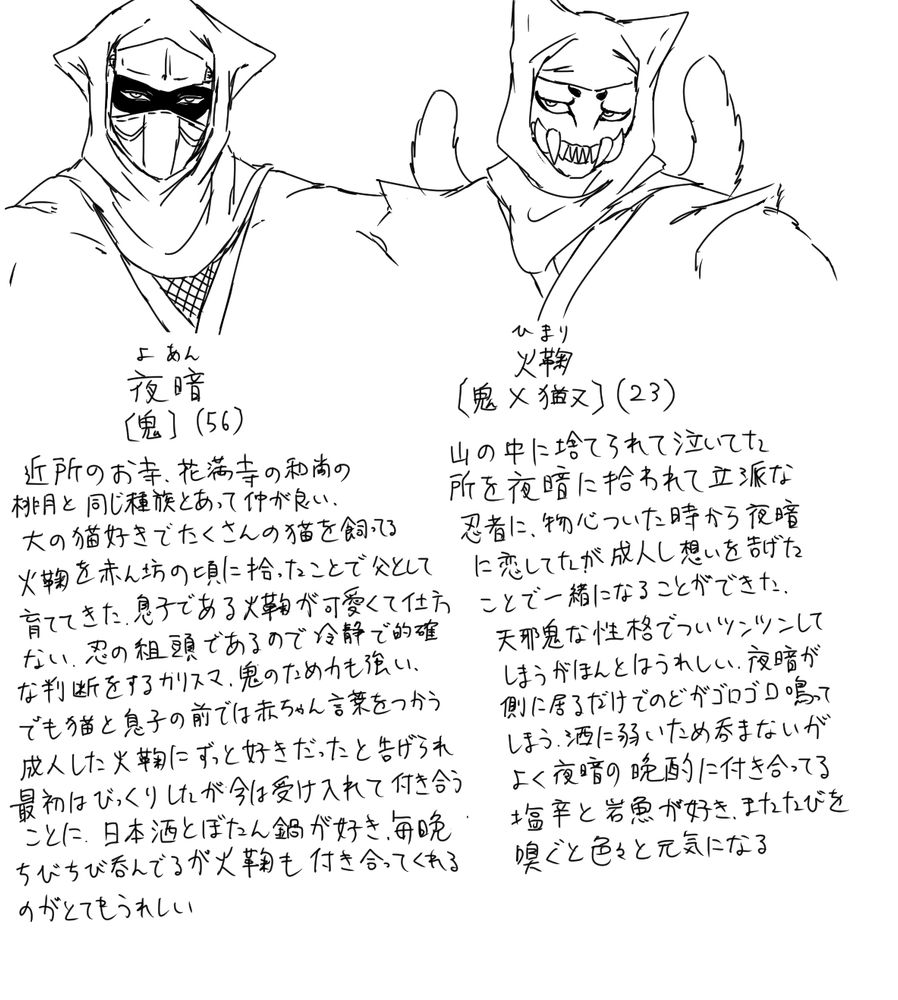 よあん
夜暗
[鬼](56)
近所のお寺、花満寺の和尚の
桃月と同じ種族とあって仲が良い、
大の猫好きでたくさんの猫を飼ってる
火鞠を赤ん坊の頃に拾ったことで父として
育ててきた、息子である火鞠が可愛くて仕方
ない、忍の組頭であるので冷静で的確
な判断をするカリスマ、鬼のため力も強い、
でも猫と息子の前では赤ちゃん言葉をつかう
成人した火鞠にずっと好きだったと告げられ
最初はびっくりしたが今は受け入れて付き合う
ことに、日本酒とぼたん鍋が好き、毎晩
ちびちび呑んでるが火鞠も付き合ってくれる
のがとてもうれしい
ひまり
火鞠
[鬼×猫又](23)
山の中に捨てられて泣いてた
所を夜暗に拾われて立派な
忍者に、物心ついた時から夜暗
に恋してたが成人し想いを告げた
ことで一緒になることができた、
天邪鬼な性格でついツンツンして
しまうがほんとはうれしい、夜暗が
側に居るだけでのどがゴロゴロ鳴って
しまう、酒に弱いため呑まないが
よく夜暗の晩酌に付き合ってる
塩辛と岩魚が好き、またたびを
嗅ぐと色々と元気になる